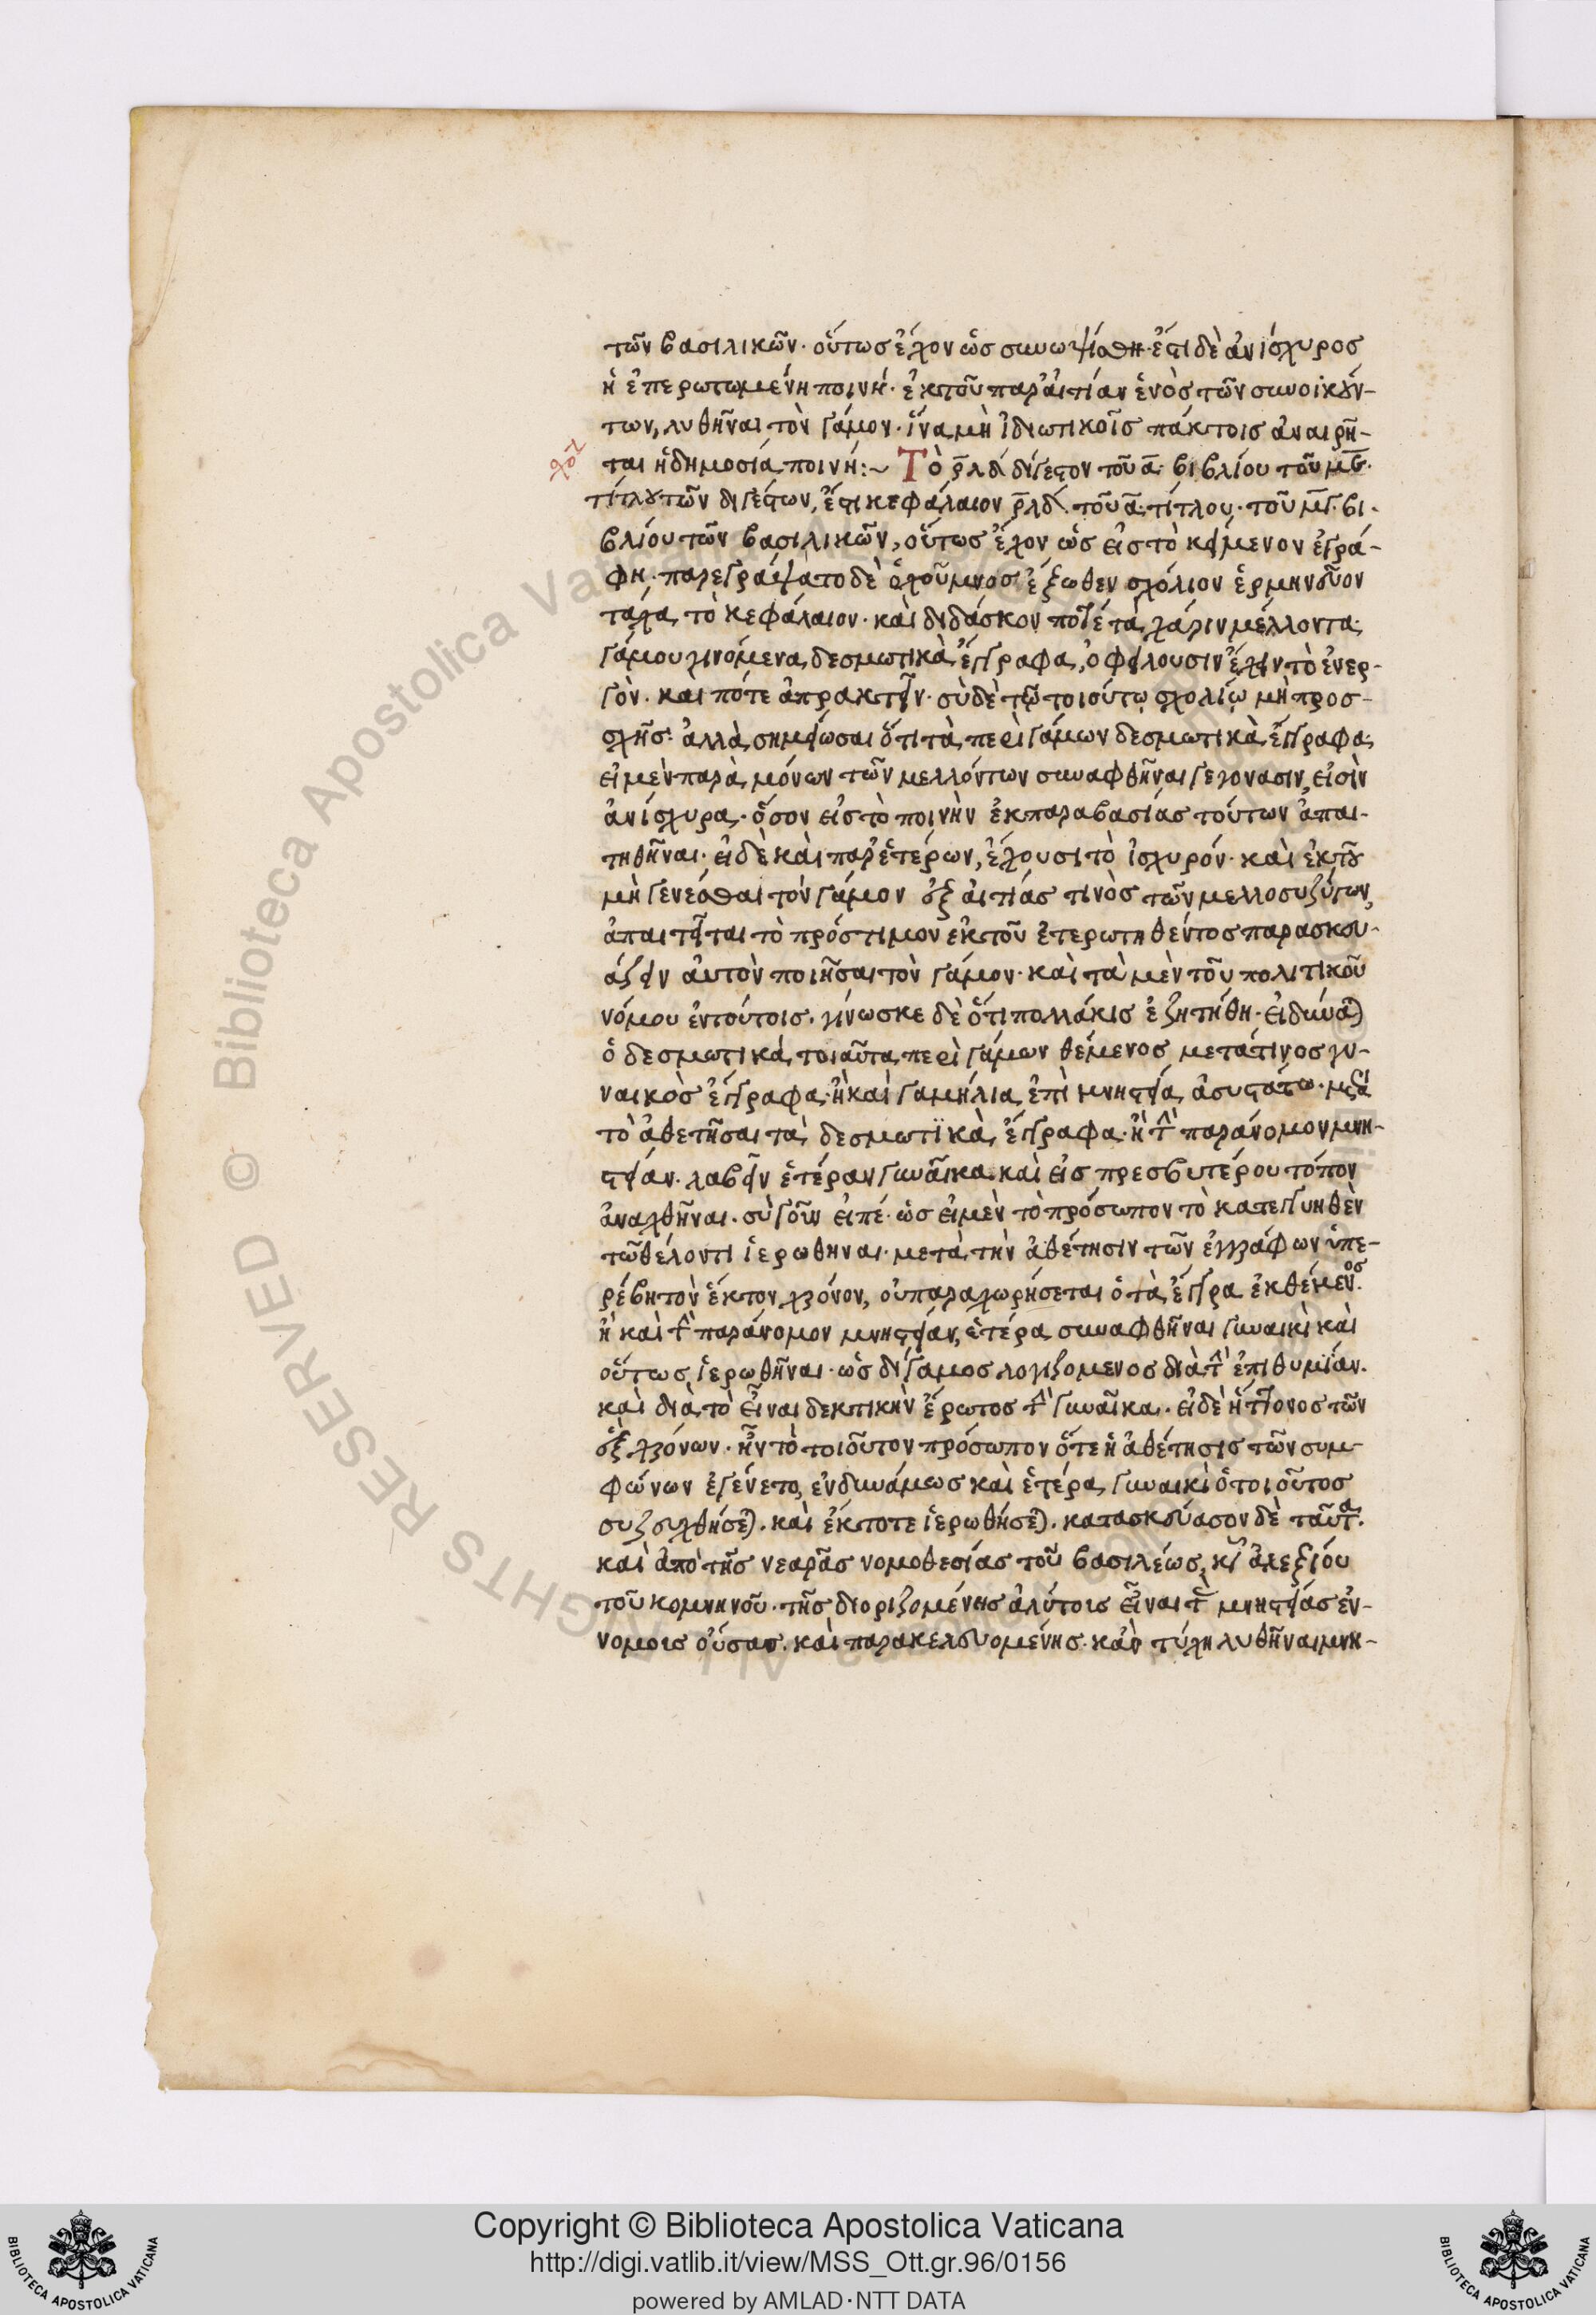 τῶν βασιλικῶν· οὕτως ἔχον ὡς συνωψίσθη· ἔστι δὲ ἀνίσχυρος
ἡ ἐπερωτωμένη ποινή· ἐκ τοῦ παρ' αἰτίαν ἑνὸς τῶν συνοικούν-
των, λυθῆναι τὸν γάμον· ἵνα μὴ ἰδιωτικοῖς πάκτοις ἀναιρῆ-
ται ἡ δημοσία ποινή:~ Τὸ ρλδ διγεστον τοῦ α βιβλίου τοῦ με
τίτλου τῶν διγέστων, ἔστι κεφάλαιον ρλδ τοῦ α τίτλου· τοῦ μγ βι-
βλίου τῶν βασιλικῶν, οὕτως ἔχον ὡς εἰς τὸ κείμενον ἐγρά-
φη· παρεγράψατο δὲ ὁ χούμνος ἔξωθεν σχόλιον ἑρμηνεῦον
τάχα τὸ κεφάλαιον· καὶ διδάσκον πότε τὰ χάριν μέλλοντα
γάμου γινόμενα δεσμωτικὰ ἔγγραφα, ὀφείλουσιν ἔχειν τὸ ἐνερ-
γόν· και πότε ἀπρακτεῖν· σὺ δὲ τῷ τοιούτῳ σχολίῳ μὴ προσ-
σχῇς· ἀλλὰ σημείωσαι ὅτι τὰ περὶ γάμων δεσμωτικὰ ἔγγραφα,
εἰ μὲν παρὰ μόνων τῶν μελλόντων συναφθῆναι γεγόνασιν, εἰσὶν
ἀνίσχυρα· ὅσον εἰς τὸ ποινὴν ἐκ παραβασίας τούτων ἀπαι-
τηθῆναι· εἰ δὲ καὶ παρ' ἑτέρων, ἔχουσι τὸ ἰσχυρόν· καὶ ἐκ τοῦ
μὴ γενέσθαι τὸν γάμον ἐξ αἰτίας τινὸς τῶν μελλοσυζύγων,
ἀπαιτεῖται τὸ πρόστιμον ἐκ τοῦ ἐπερωτηθέντος παρασκευ-
άζειν αὐτὸν ποιῆσαι τὸν γάμον· καὶ τὰ μὲν τοῦ πολιτικοῦ
νόμου ἐν τούτοις· γίνωσκε δὲ ὅτι πολλάκις ἐζητήθη· εἰ δύναται
ὁ δεσμωτικὰ τοιαῦτα περὶ γάμων θέμενος μετά τινος γυ-
ναικὸς ἔγγραφα· ἢ καὶ γαμήλια ἐπὶ μνηστεία ἀσυστάτω· μετὰ
τὸ ἀθετῆσαι τὰ δεσμωτϊκὰ ἔγγραφα· ἢ τὴν παράνομον μνη-
στείαν· λαβεῖν ἑτέραν γυναῖκα· καὶ εἰς πρεσβυτέρου τόπον
ἀναχθῆναι· σὺ γοῦν εἰπέ· ὡς εἰ μὲν τὸ πρόσωπον τὸ κατεγγυηθὲν
τῶ θέλοντι ἱερωθηναι· μετὰ τὴν ἀθέτησιν τῶν ἐγγράφων ὑπε-
ρέβη τὸν ἕκτον χρόνον, οὐ παραχωρήσεται ὁ τὰ ἔγγρα ἐκθέμενος·
ἢ καὶ τὴν παράνομον μνηστείαν, ἑτέρα συναφθῆναι γυναικὶ καὶ
οὕτως ἱερωθῆναι· ὡς δίγαμος λογιζομενος διὰ τὴν ἐπιθυμίαν·
καὶ διὰ τὸ εἶναι δεκτικὴν ἔρωτος τὴν γυναῖκα· εἰ δὲ ἧττονος τῶν
ἓξ χρόνων· ἦν τὸ τοιοῦτον πρόσωπον ὅτε ἡ ἀθέτησις τῶν συμ-
φώνων ἐγένετο, ἐνδυνάμως καὶ ἑτέρα γυναικὶ ὁ τοιοῦτος
συζευχθήσεται· καὶ ἔκτοτε ἱερωθήσεται· κατασκεύασον δὲ ταῦτα·
καὶ ἀπὸ τῆς νεαρᾶς νομοθεσίας τοῦ βασιλέως κυρ ἀλεξίου
τοῦ κομνηνοῦ· τῆς διοριζομένης ἀλύτους εἶναι τὰς μνηστείας ἐν-
νομοις οὔσας· καὶ παρακελευομένης· κἂν τύχη λυθῆναι μνη-